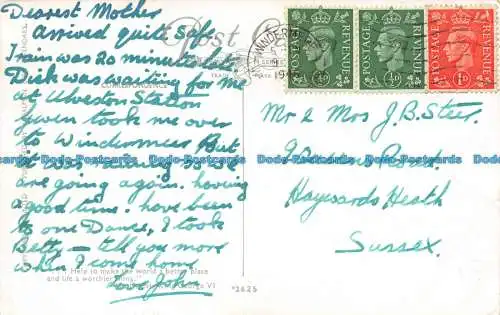 Dearest Mother
Arrived quite safe
Train was 20 minutes late
Dick was waiting for me
at Ulveston Station
took me over
to Windermere But
it was raining so we
are going again. having
a good time. have been
to one Dance, I took
Betty — tell you more
when I come home
Love John
Post
CORRESPONDENCE
WINDERMERE
POSTAGE
REVENUE
½D
POSTAGE
REVENUE
½D
POSTAGE
REVENUE
1D
Mr & Mrs J. B. Steer.
Road.
Haywards Heath
Sussex.
Help to make the world a better place
and life a worthier thing."
VI
"2625
Dodo-Postcards Dodo-Postcards Dodo-Postcards Dodo-Postcards